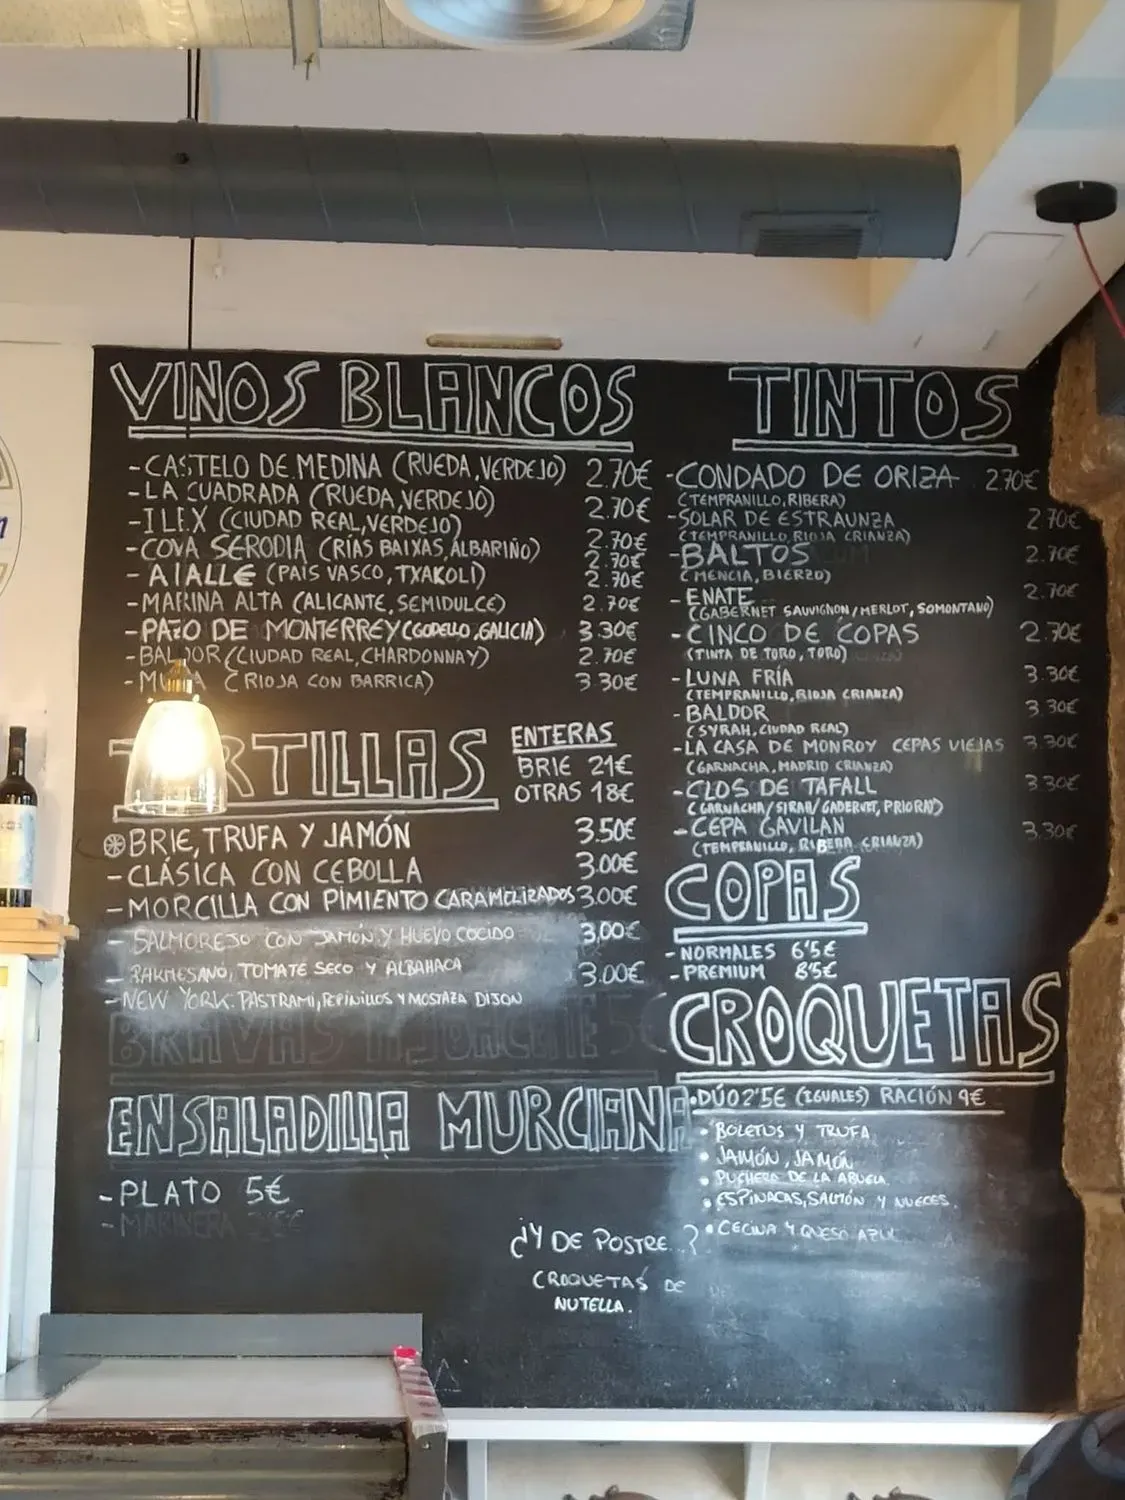 VINOS BLANCOS
-CASTELO DE MEDINA (RUEDA, VERDEJO) 2.70€
-LA CUADRADA (RUEDA, VERDEJO) 2.70€
-ILEX (CIUDAD REAL, VERDEJO) 2.70€
-COVA SERODIA (RIAS BAIXAS, ALBARIÑO) 2.70€
-AIALLE (PAÍS VASCO, TXAKOLI) 2.70€
-MARINA ALTA (ALICANTE, SEMIDULCE) 2.70€
-PAZO DE MONTERREY (GODELLO, GALICIA) 3.30€
-BALDOR (CIUDAD REAL, CHARDONNAY) 2.70€
(RIOJA CON BARRICA) 3.30€
TORTILLAS
ENTERAS
BRIE 21€
OTRAS 18€
BRIE, TRUFA Y JAMÓN 3.50€
-CLÁSICA CON CEBOLLA 3.00€
-MORCILLA CON PIMIENTO CARAMELIZADOS 3.00€
-SALMOREJO CON JAMÓN Y HUEVO COCIDO 3,00€
-PARMESANO, TOMATE SECO Y ALBAHACA 3.00€
-NEW YORK. PASTRAMI, PEPINILLOS Y MOSTAZA DIJON
BRAVAS 5€
ENSALADILLA MURCIANA
-PLATO 5€
-MARINERA
TINTOS
-CONDADO DE ORIZA 2.70€
(TEMPRANILLO, RIBERA)
-SOLAR DE ESTRAUNZA 2.70€
(TEMPRANILLO, RIOJA CRIANZA)
-BALTOS 2.70€
(MENCIA, BIERZO)
-ENATE 2.70€
(GABERNET SAUVIGNON/MERLOT, SOMONTANO)
-CINCO DE COPAS 2.70€
(TINTA DE TORO, TORO)
-LUNA FRÍA 3.30€
(TEMPRANILLO, RIOJA CRIANZA)
-BALDOR 3.30€
(SYRAH, CIUDAD REAL)
-LA CASA DE MONROY CEPAS VIEJAS 3.30€
(GARNACHA, MADRID CRIANZA)
-CLOS DE TAFALL 3.30€
(GARNACHA/SIRAH/GABERNET, PRIORAT)
-CEPA GAVILAN 3.30€
(TEMPRANILLO, RIBERA CRIANZA)
COPAS
-NORMALES 6'5€
-PREMIUM 8'5€
CROQUETAS
•DÚO 2'5€ (IGUALES) RACIÓN 9€
• BOLETUS Y TRUFA
• JAMÓN, JAMÓN
• PUCHERO DE LA ABUELA.
• ESPINACAS, SALMÓN Y NUECES.
• CECINA Y QUESO AZUL
¿Y DE POSTRE...?
CROQUETAS DE
NUTELLA.